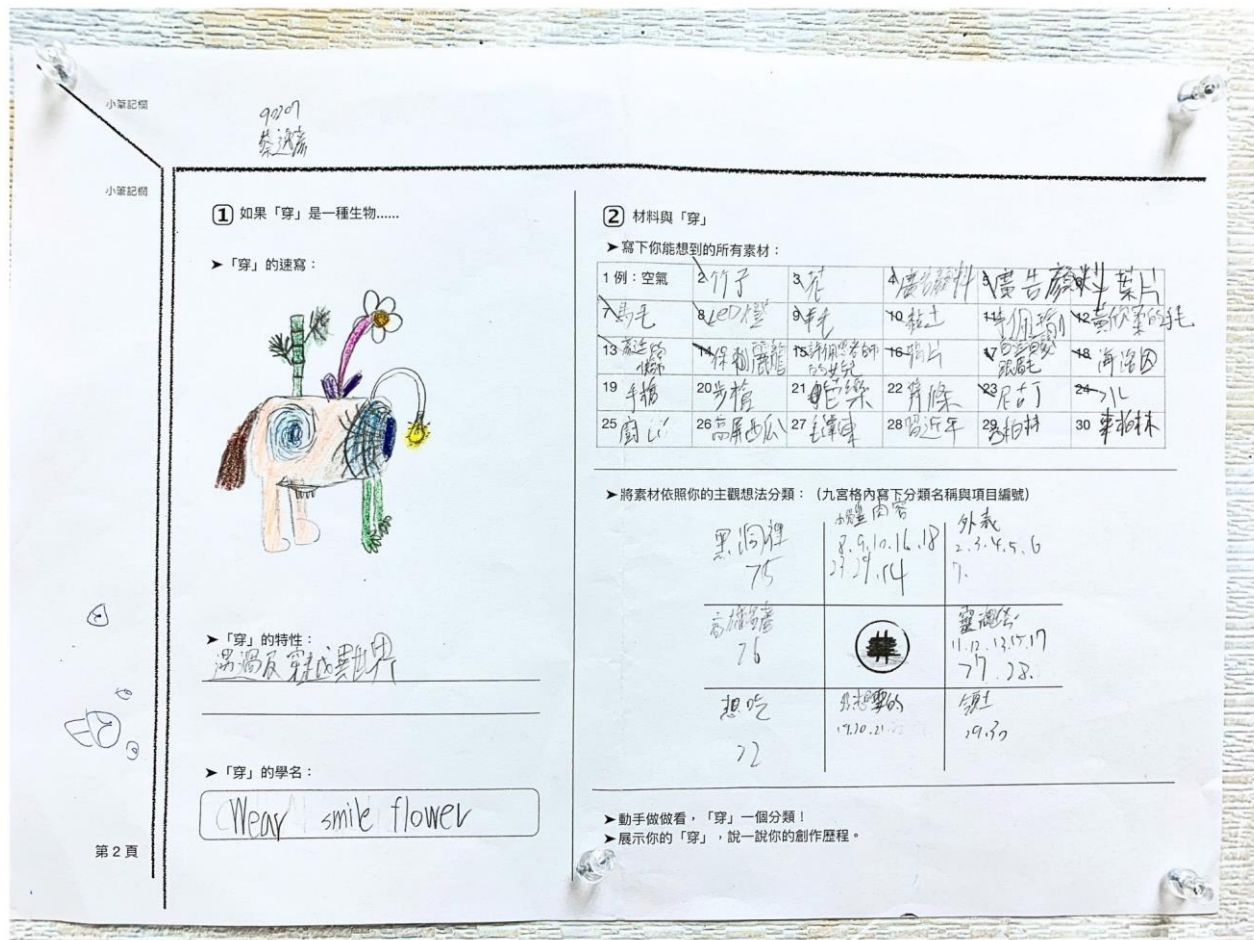 小筆記欄
90207
小筆記欄
1 如果「穿」是一種生物......
➤「穿」的速寫：
➤「穿」的特性：
➤「穿」的學名：
Wear smile flower
第 2 頁
2 材料與「穿」
➤寫下你能想到的所有素材：
1 例：空氣 2 竹子 3 花 4 廣告顏料 5 廣告顏料 葉片
7 馬毛 8 LED燈 9 羊毛 10 黏土 11 12
13 14 保利麗龍 15 16 17 18 海洛因
19 手槍 20 步槍 21 芭樂 22 薯條 23 尼古丁 24 水
25 廚 26 高屏西瓜 27 毛澤東 28 習近平 29 30 東柏林
➤將素材依照你的主觀想法分類：（九宮格內寫下分類名稱與項目編號）
黑洞裡
25
內容
8.9.10.16.18
23.24.14
外表
2.3.4.5.6
7.
26
11.12.13.15.17
27.28.
想吃
22
我想要的
19.20.21
領土
29.30
➤動手做做看，「穿」一個分類！
➤展示你的「穿」，說一說你的創作歷程。